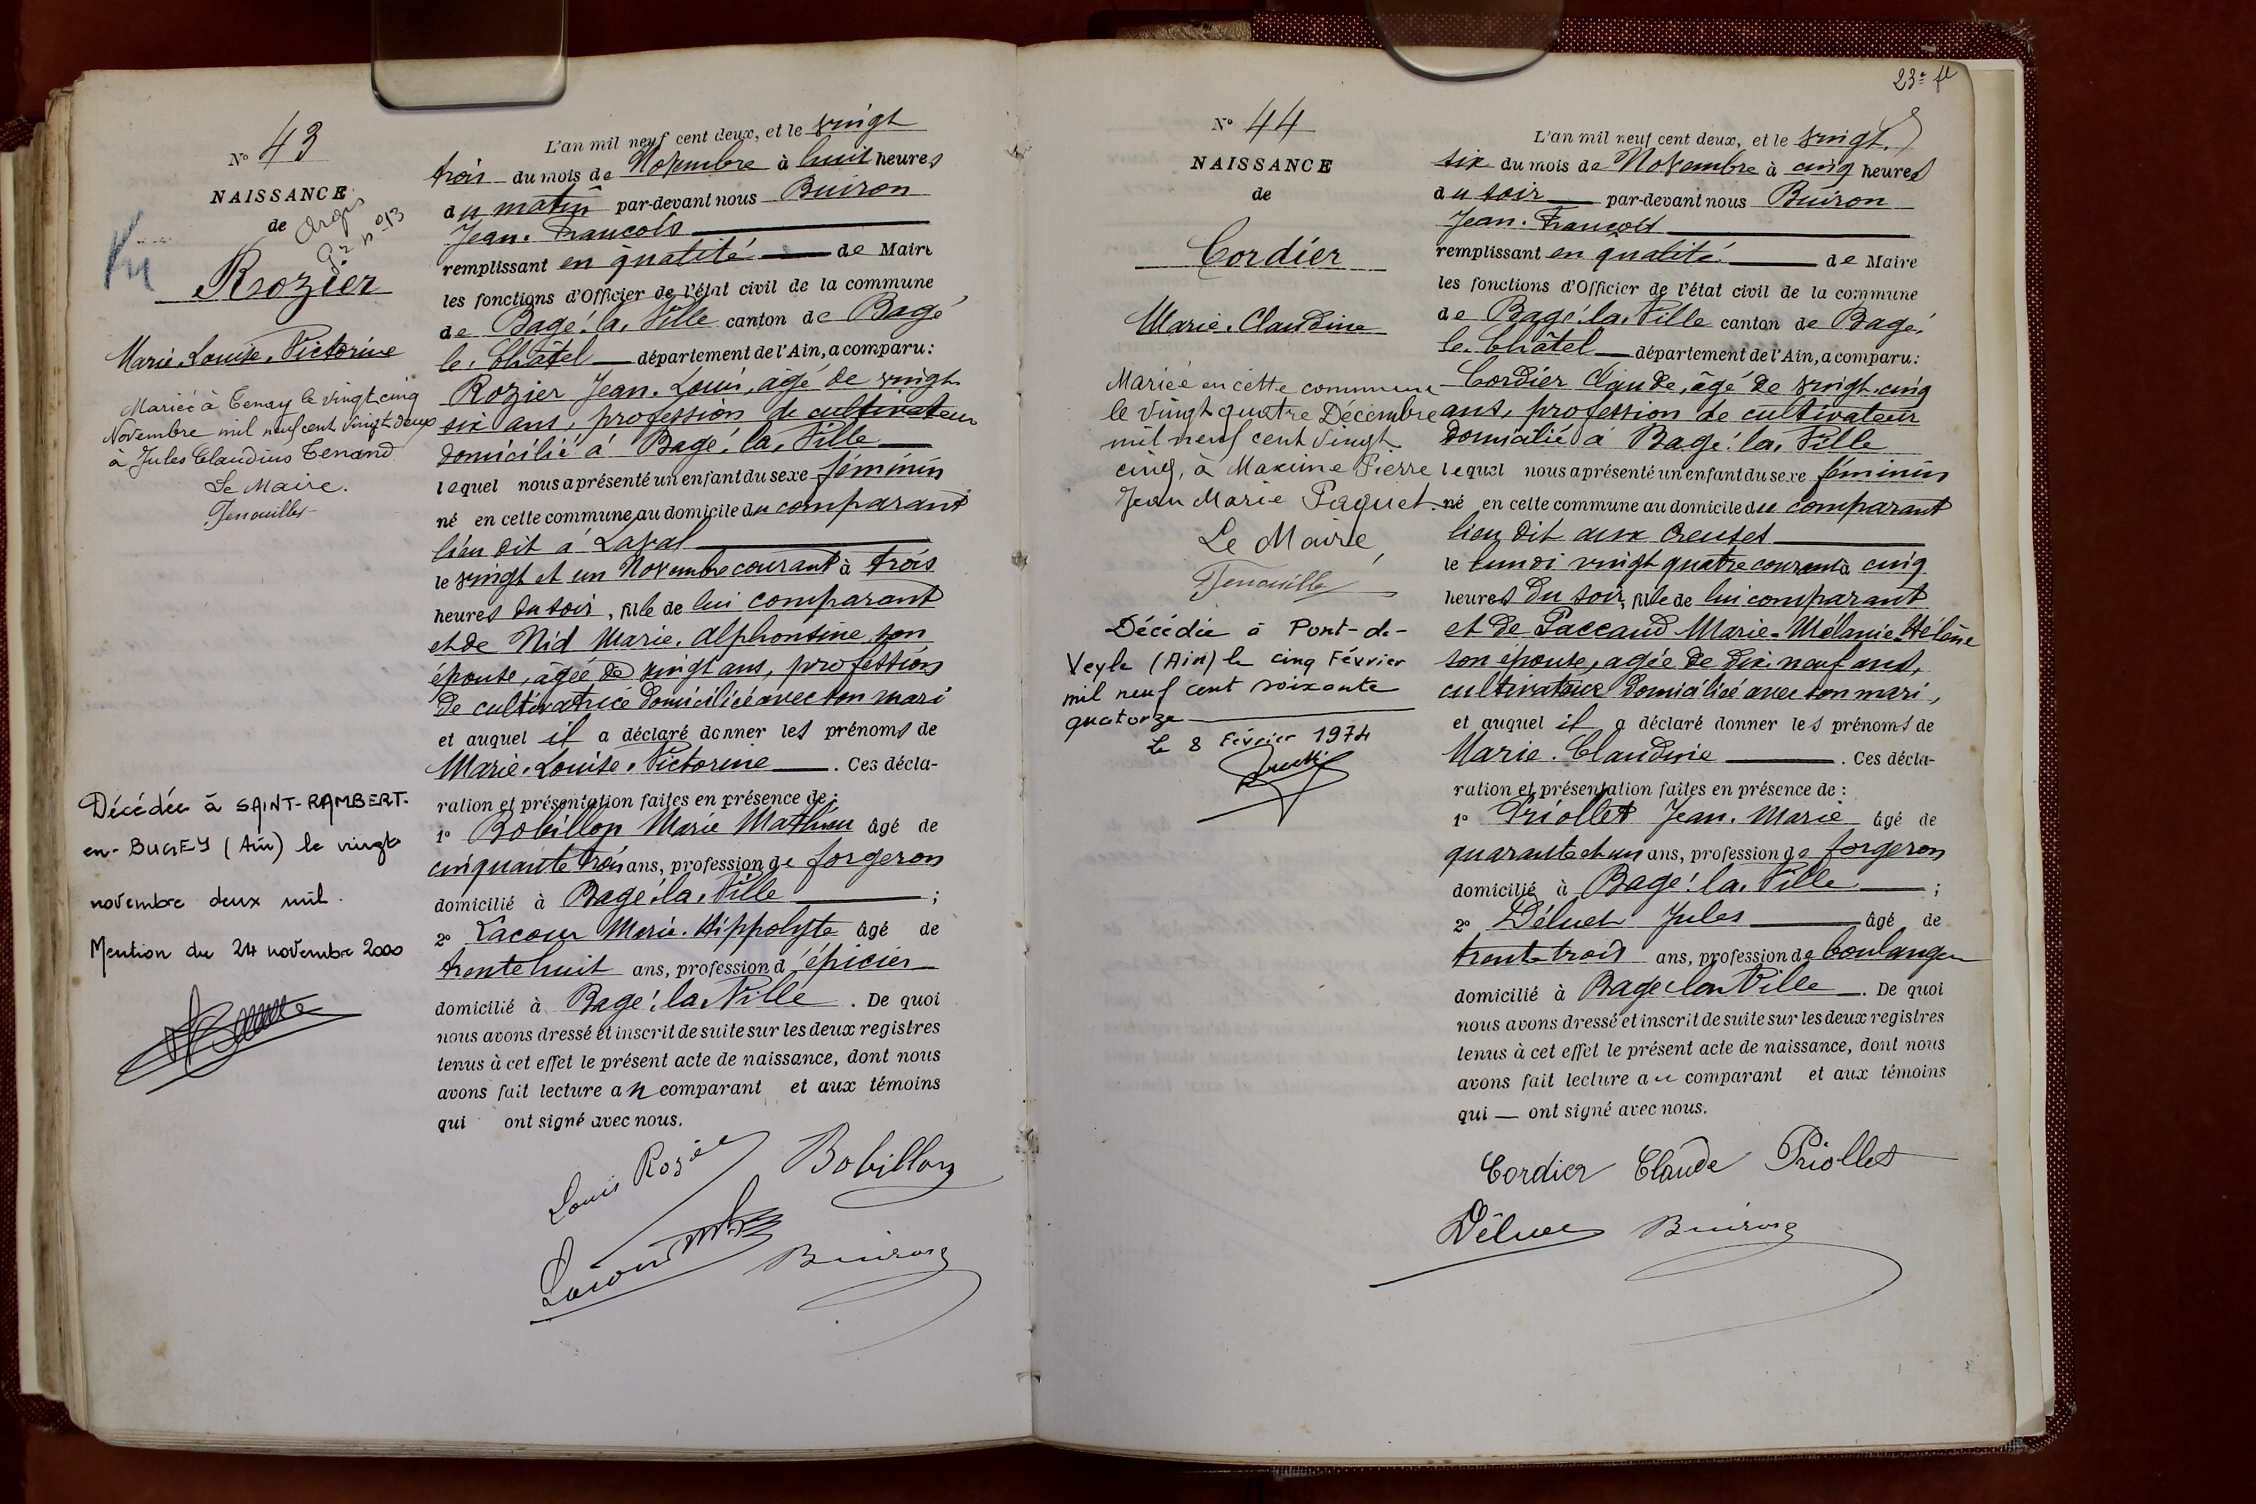 N° 43
NAISSANCE
de
Rozier
Marie. Louise. Victorine
Mariée à Tenay le vingt cinq
Novembre mil neuf cent vingt deux
à Jules Claudius Tenand
Le Maire.
Décédée à SAINT-RAMBERT-
en-BUGEY (Ain) le vingt
novembre deux mil.
Mention du 24 novembre 2000
L'an mil neuf cent deux, et le vingt
trois du mois de Novembre à huit heures
du matin par-devant nous Buiron
Jean. François
remplissant en qualité de Maire
les fonctions d'Officier de l'état civil de la commune
de Bagé. la. Ville canton de Bagé
le. Châtel département de l'Ain, a comparu:
Rozier Jean. Louis, âgé de vingt
six ans, profession de cultivateur
domicilié à Bagé. la. Ville
lequel nous a présenté un enfant du sexe féminin
né en cette commune au domicile du comparant
lieu dit à Laval
le vingt et un Novembre courant à trois
heures du soir, fille de lui comparant
et de Nid Marie. Alphonsine son
épouse, âgée de vingt ans, profession
de cultivatrice domiciliée avec son mari
et auquel il a déclaré donner les prénoms de
Marie. Louise. Victorine. Ces décla-
ration et présentation faites en présence de:
1° Bobillon Marie Mathieu âgé de
cinquante trois ans, profession de forgeron
domicilié à Bagé. la. Ville;
2° Lacour Marie. Hippolyte âgé de
trente huit ans, profession d'épicier
domicilié à Bagé. la. Ville. De quoi
nous avons dressé et inscrit de suite sur les deux registres
tenus à cet effet le présent acte de naissance, dont nous
avons fait lecture au comparant et aux témoins
qui ont signé avec nous.
Louis Rozier Bobillon
Lacour Buiron
23e f
N° 44
NAISSANCE
de
Cordier
Marie. Claudine
Mariée en cette commune
le vingt quatre Décembre
mil neuf cent vingt
cinq, à Maxime Pierre
Jean Marie Paquet.
Le Maire,
Décédée à Pont-de-
Veyle (Ain) le cinq Février
mil neuf cent soixante
quatorze
Le 8 Février 1974
L'an mil neuf cent deux, et le vingt.
six du mois de Novembre à cinq heures
du soir par-devant nous Buiron
Jean. François
remplissant en qualité de Maire
les fonctions d'Officier de l'état civil de la commune
de Bagé. la. Ville canton de Bagé.
le. Châtel département de l'Ain, a comparu:
Cordier Claude, âgé de vingt. cinq
ans, profession de cultivateur
domicilié à Bagé. la. Ville
lequel nous a présenté un enfant du sexe féminin
né en cette commune au domicile du comparant
lieu dit aux Creuses
le lundi vingt quatre courant à cinq
heures du soir, fille de lui comparant
et de Paccaud Marie-Mélanie-Hélène
son épouse, âgée de dix. neuf ans,
cultivatrice domiciliée avec son mari,
et auquel il a déclaré donner les prénoms de
Marie. Claudine. Ces décla-
ration et présentation faites en présence de:
1° Priollet Jean. Marie âgé de
quarante et un ans, profession de forgeron
domicilié à Bagé. la. Ville;
2° Déluet Jules âgé de
trente trois ans, profession de boulanger
domicilié à Bagé. la. Ville. De quoi
nous avons dressé et inscrit de suite sur les deux registres
tenus à cet effet le présent acte de naissance, dont nous
avons fait lecture au comparant et aux témoins
qui ont signé avec nous.
Cordier Claude Priollet
Déluet Buiron